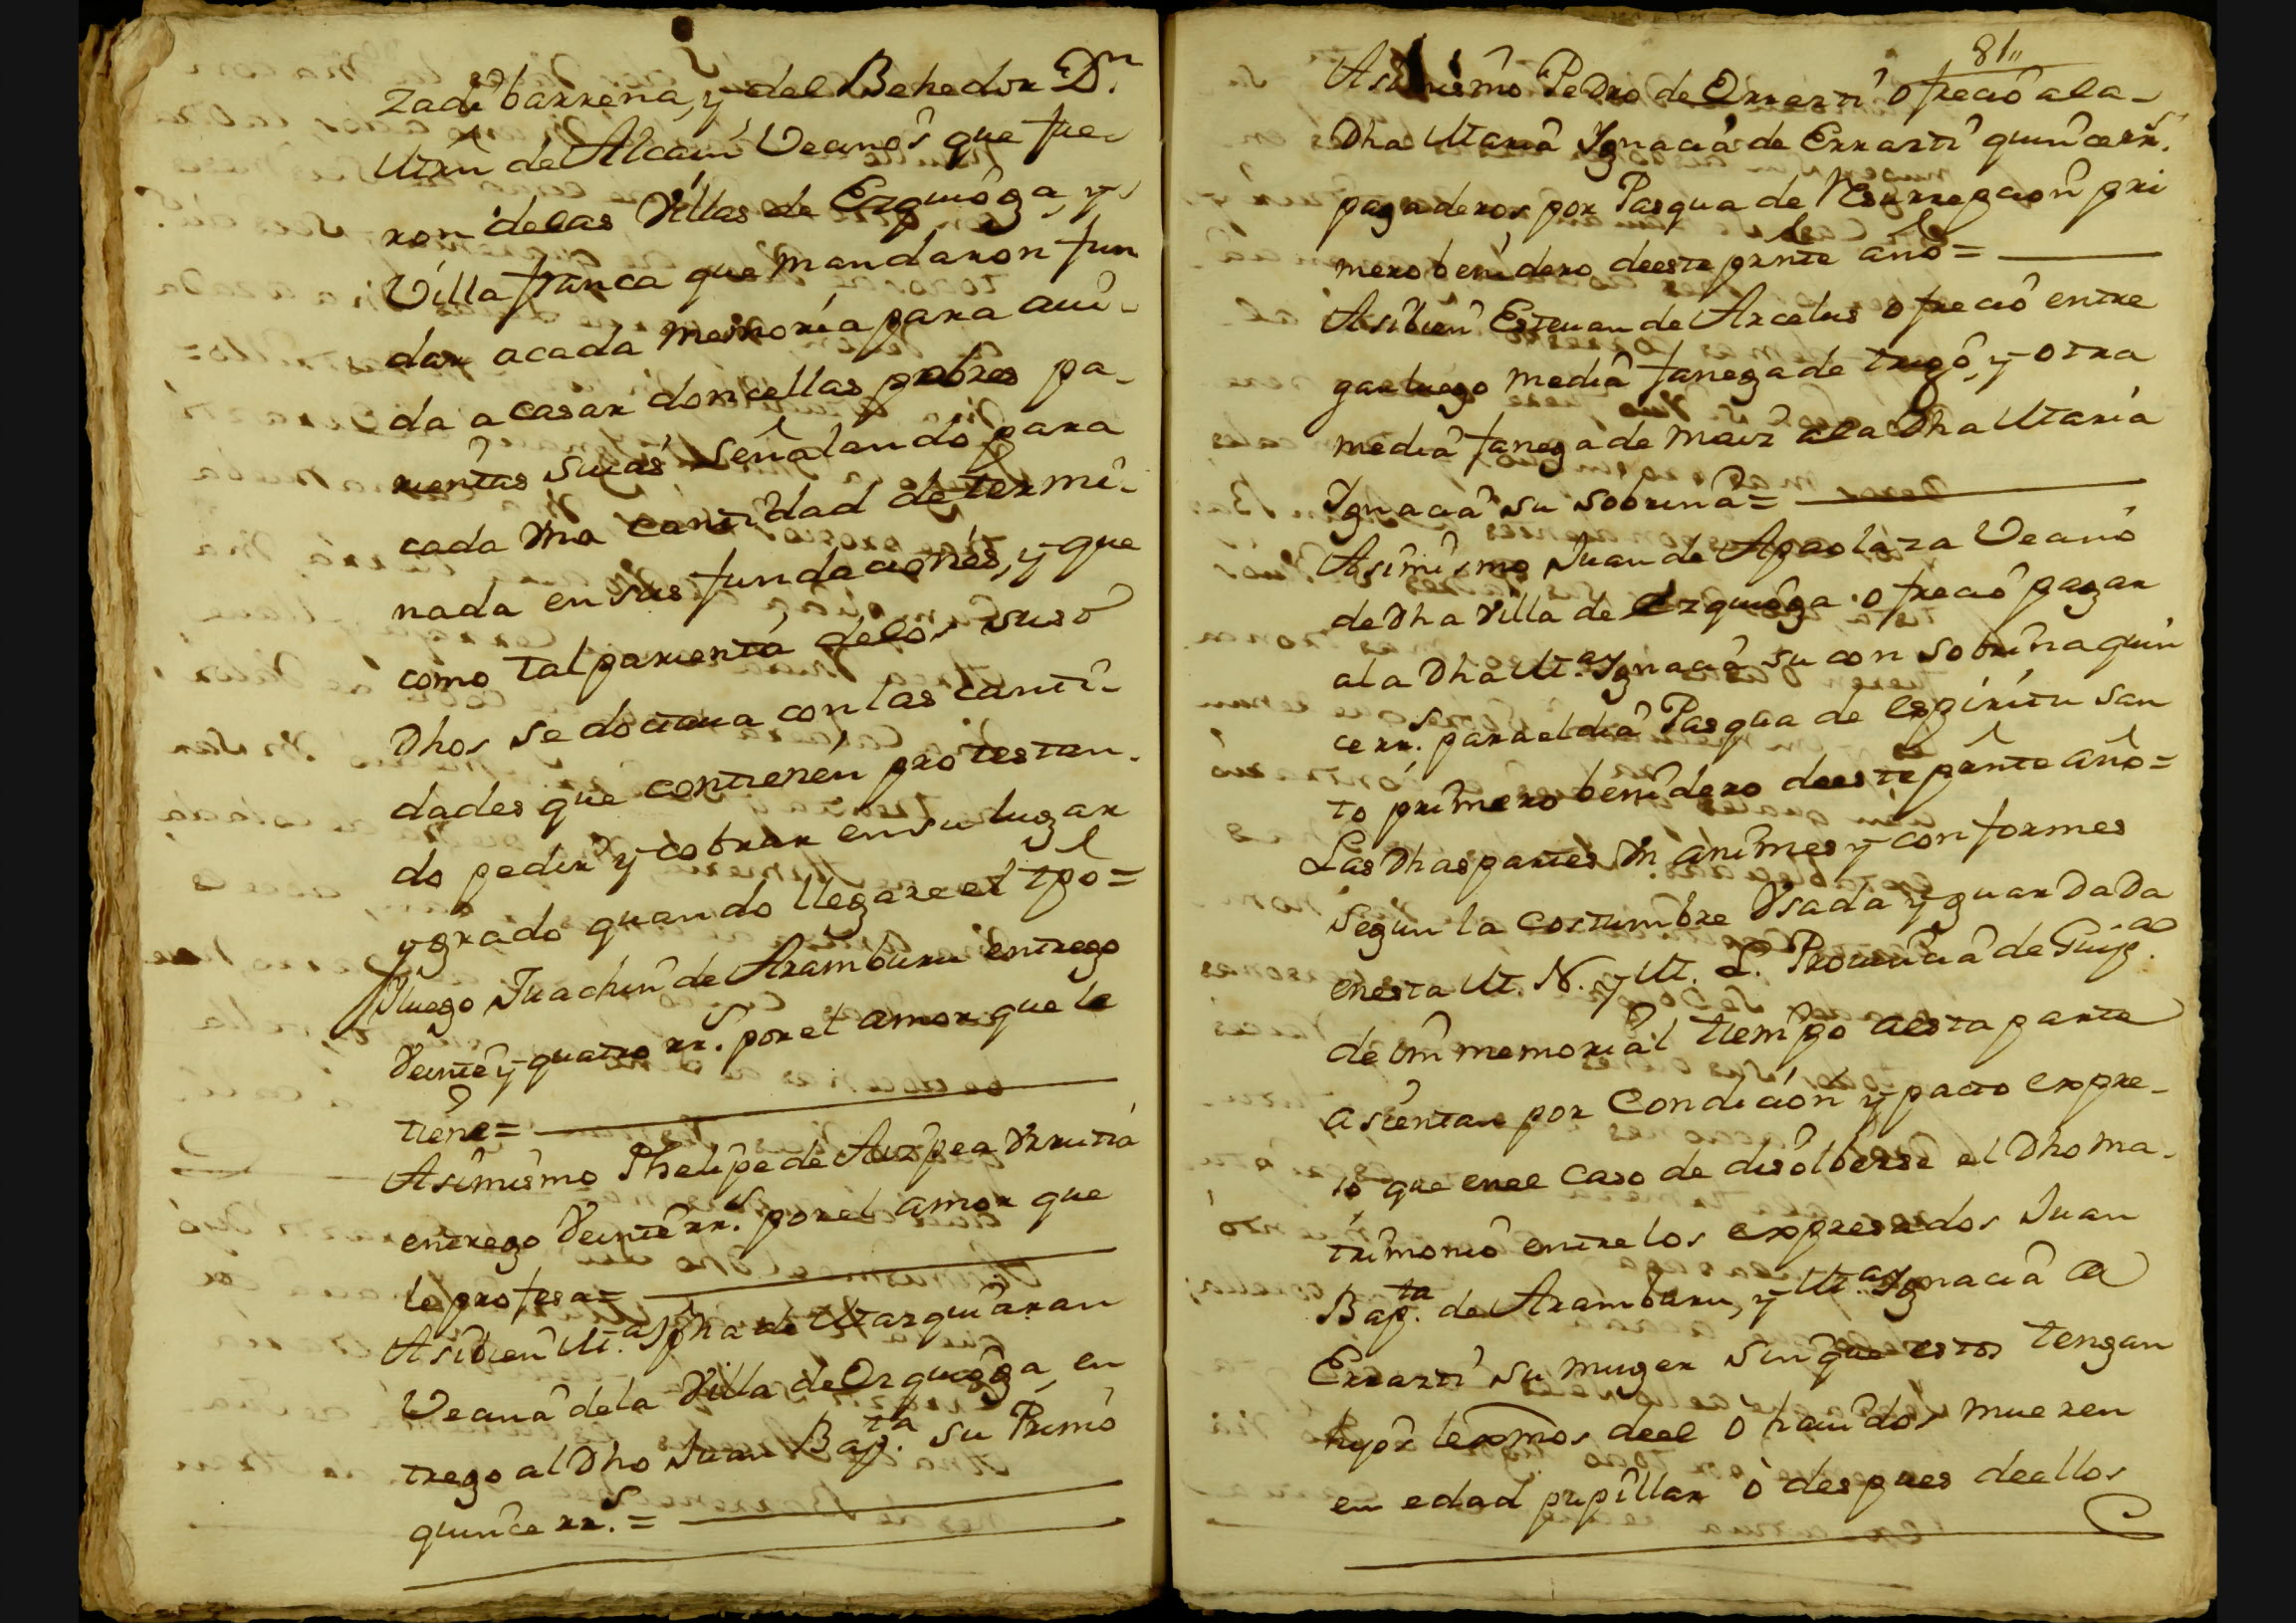 zadibarrena, y del Behedor Dn.
Mrn de Alcain Vecinos que fue-
ron delas Villas de Ezquioga, y
Villafranca que mandaron fun
dar acada memoria para aiu-
da a casar doncellas pobres pa-
rientas suias señalando para
cada Vna cantidad determi-
nada en sus fundaciones, y que
como tal parienta delos suso
Dhos se dotaua con las canti-
dades que contienen protestan-
do pedir y cobrar en su lugar
y grado quando llegare el tpo=
Yluego Juachin de Aramburu entrego
Veinte y quatro rrs. por el amor que le
tiene=
Asimismo Phelipe de Aizpea Vrrutia
entrego Veinte rrs. por el amor que
le profesa=
Asibien Ma. Jpha de Mazquiaran
Vecina dela Villa de Ezquioga, en
trego al Dho Juan Bapta. su Primo
quince rrs.=
81
Asimismo Pedro de Errazti ofrecio ala
Dha Maria Ygnacia de Errazti quince rrs.
pagaderos por Pasqua de Resurrepcion pri
mero benidero deeste prnte año=
Asibien Esteuan de Arcelus ofrecio entre
gar luego media fanega de trigo, y otra
media fanega de maiz ala Dha Maria
Ygnacia su sobrina=
Asimismo Juan de Apaolaza Vecino
de Dha Villa de Ezquioga ofrecio pagar
ala Dha Ma. Ygnacia su con sobrina quin
ce rrs. para el dia Pasqua de espiritu san
to primero benidero deeste prnte año=
Las Dhas partes Vnanimes y conformes
segun la costumbre Vsada y guardada
enesta M. N. y M. L. Prouincia de Guipco.
de inmemorial tiempo aesta parte
asientan por Condicion y pacto expre-
so que enel caso de disolberse el Dho ma-
trimonio entre los expresados Juan
Bapta. de Aramburu, y Ma. Ygnacia de
Errazti su muger sin que estos tengan
hijos lexmos deel o hauidos mueren
en edad pupillar o despues deellos